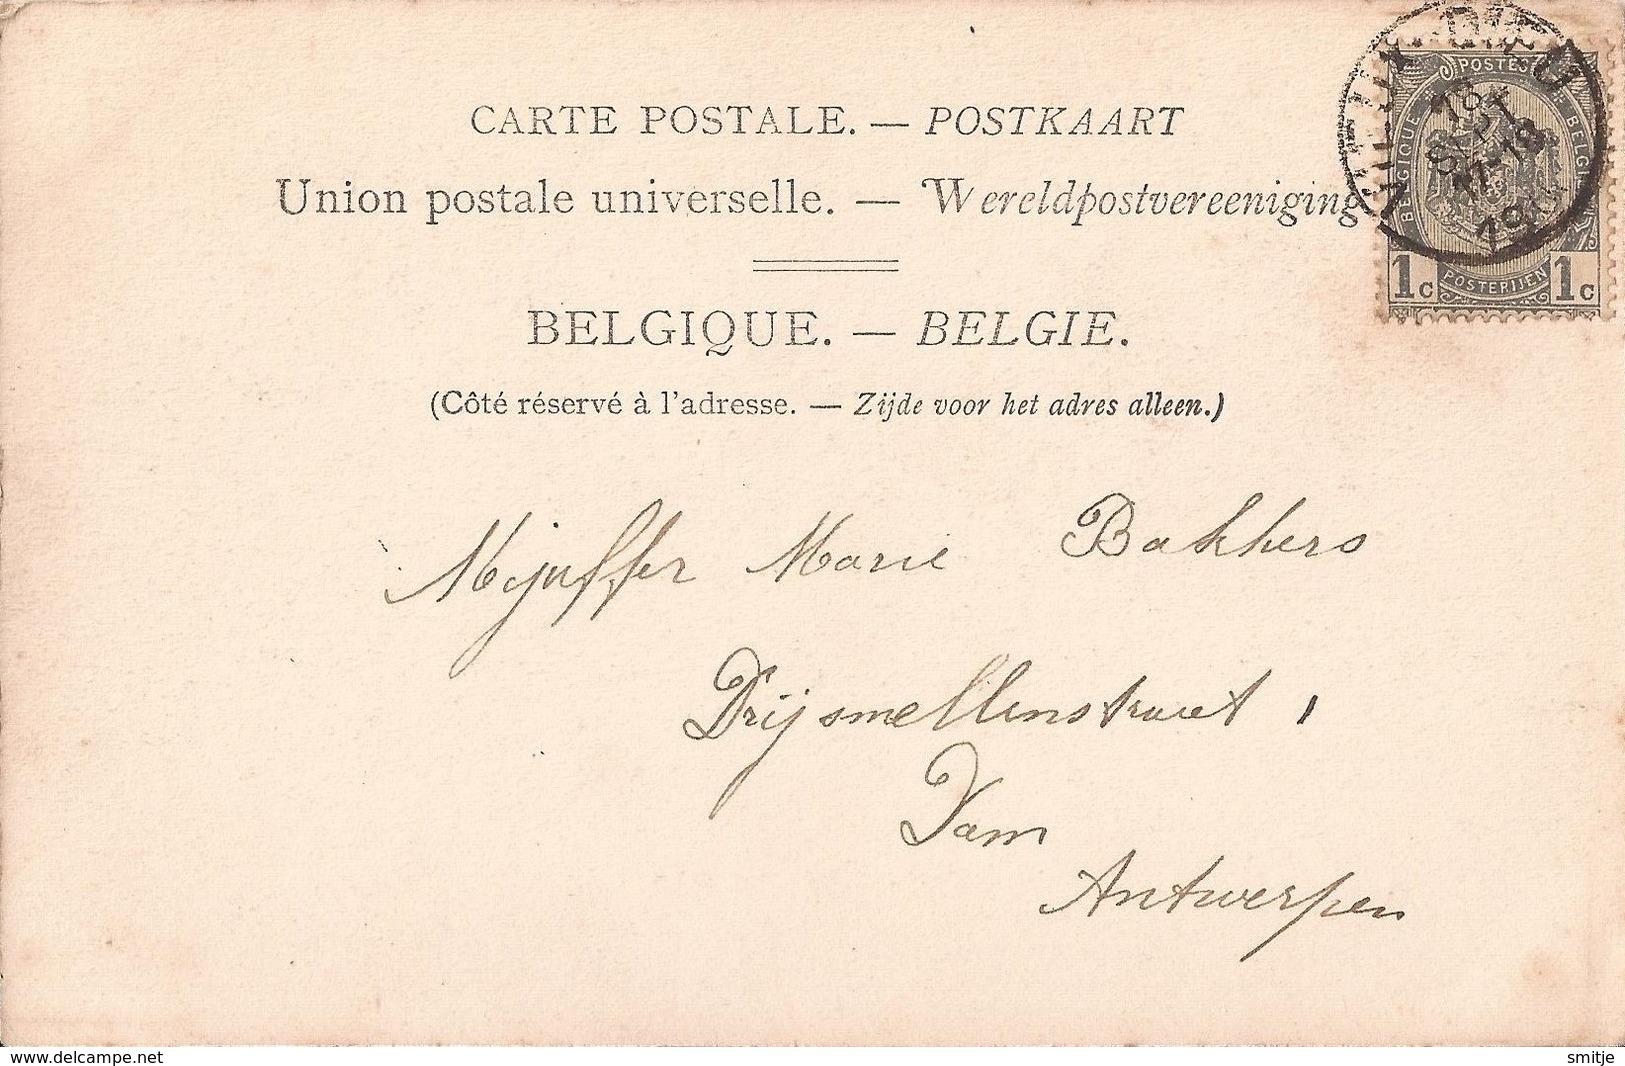 CARTE POSTALE. — POSTKAART
Union postale universelle. — Wereldpostvereeniging
BELGIQUE. — BELGIE.
(Côté réservé à l'adresse. — Zijde voor het adres alleen.)
VIEUX-DIEU
18
SEPT
17-18
POSTES
BELGIQUE
BELGIË
1c POSTERIJEN 1c
Mejuffer Marie Bakkers
Drijsmellenstraat 1
Dam
Antwerpen
www.delcampe.net
smitje